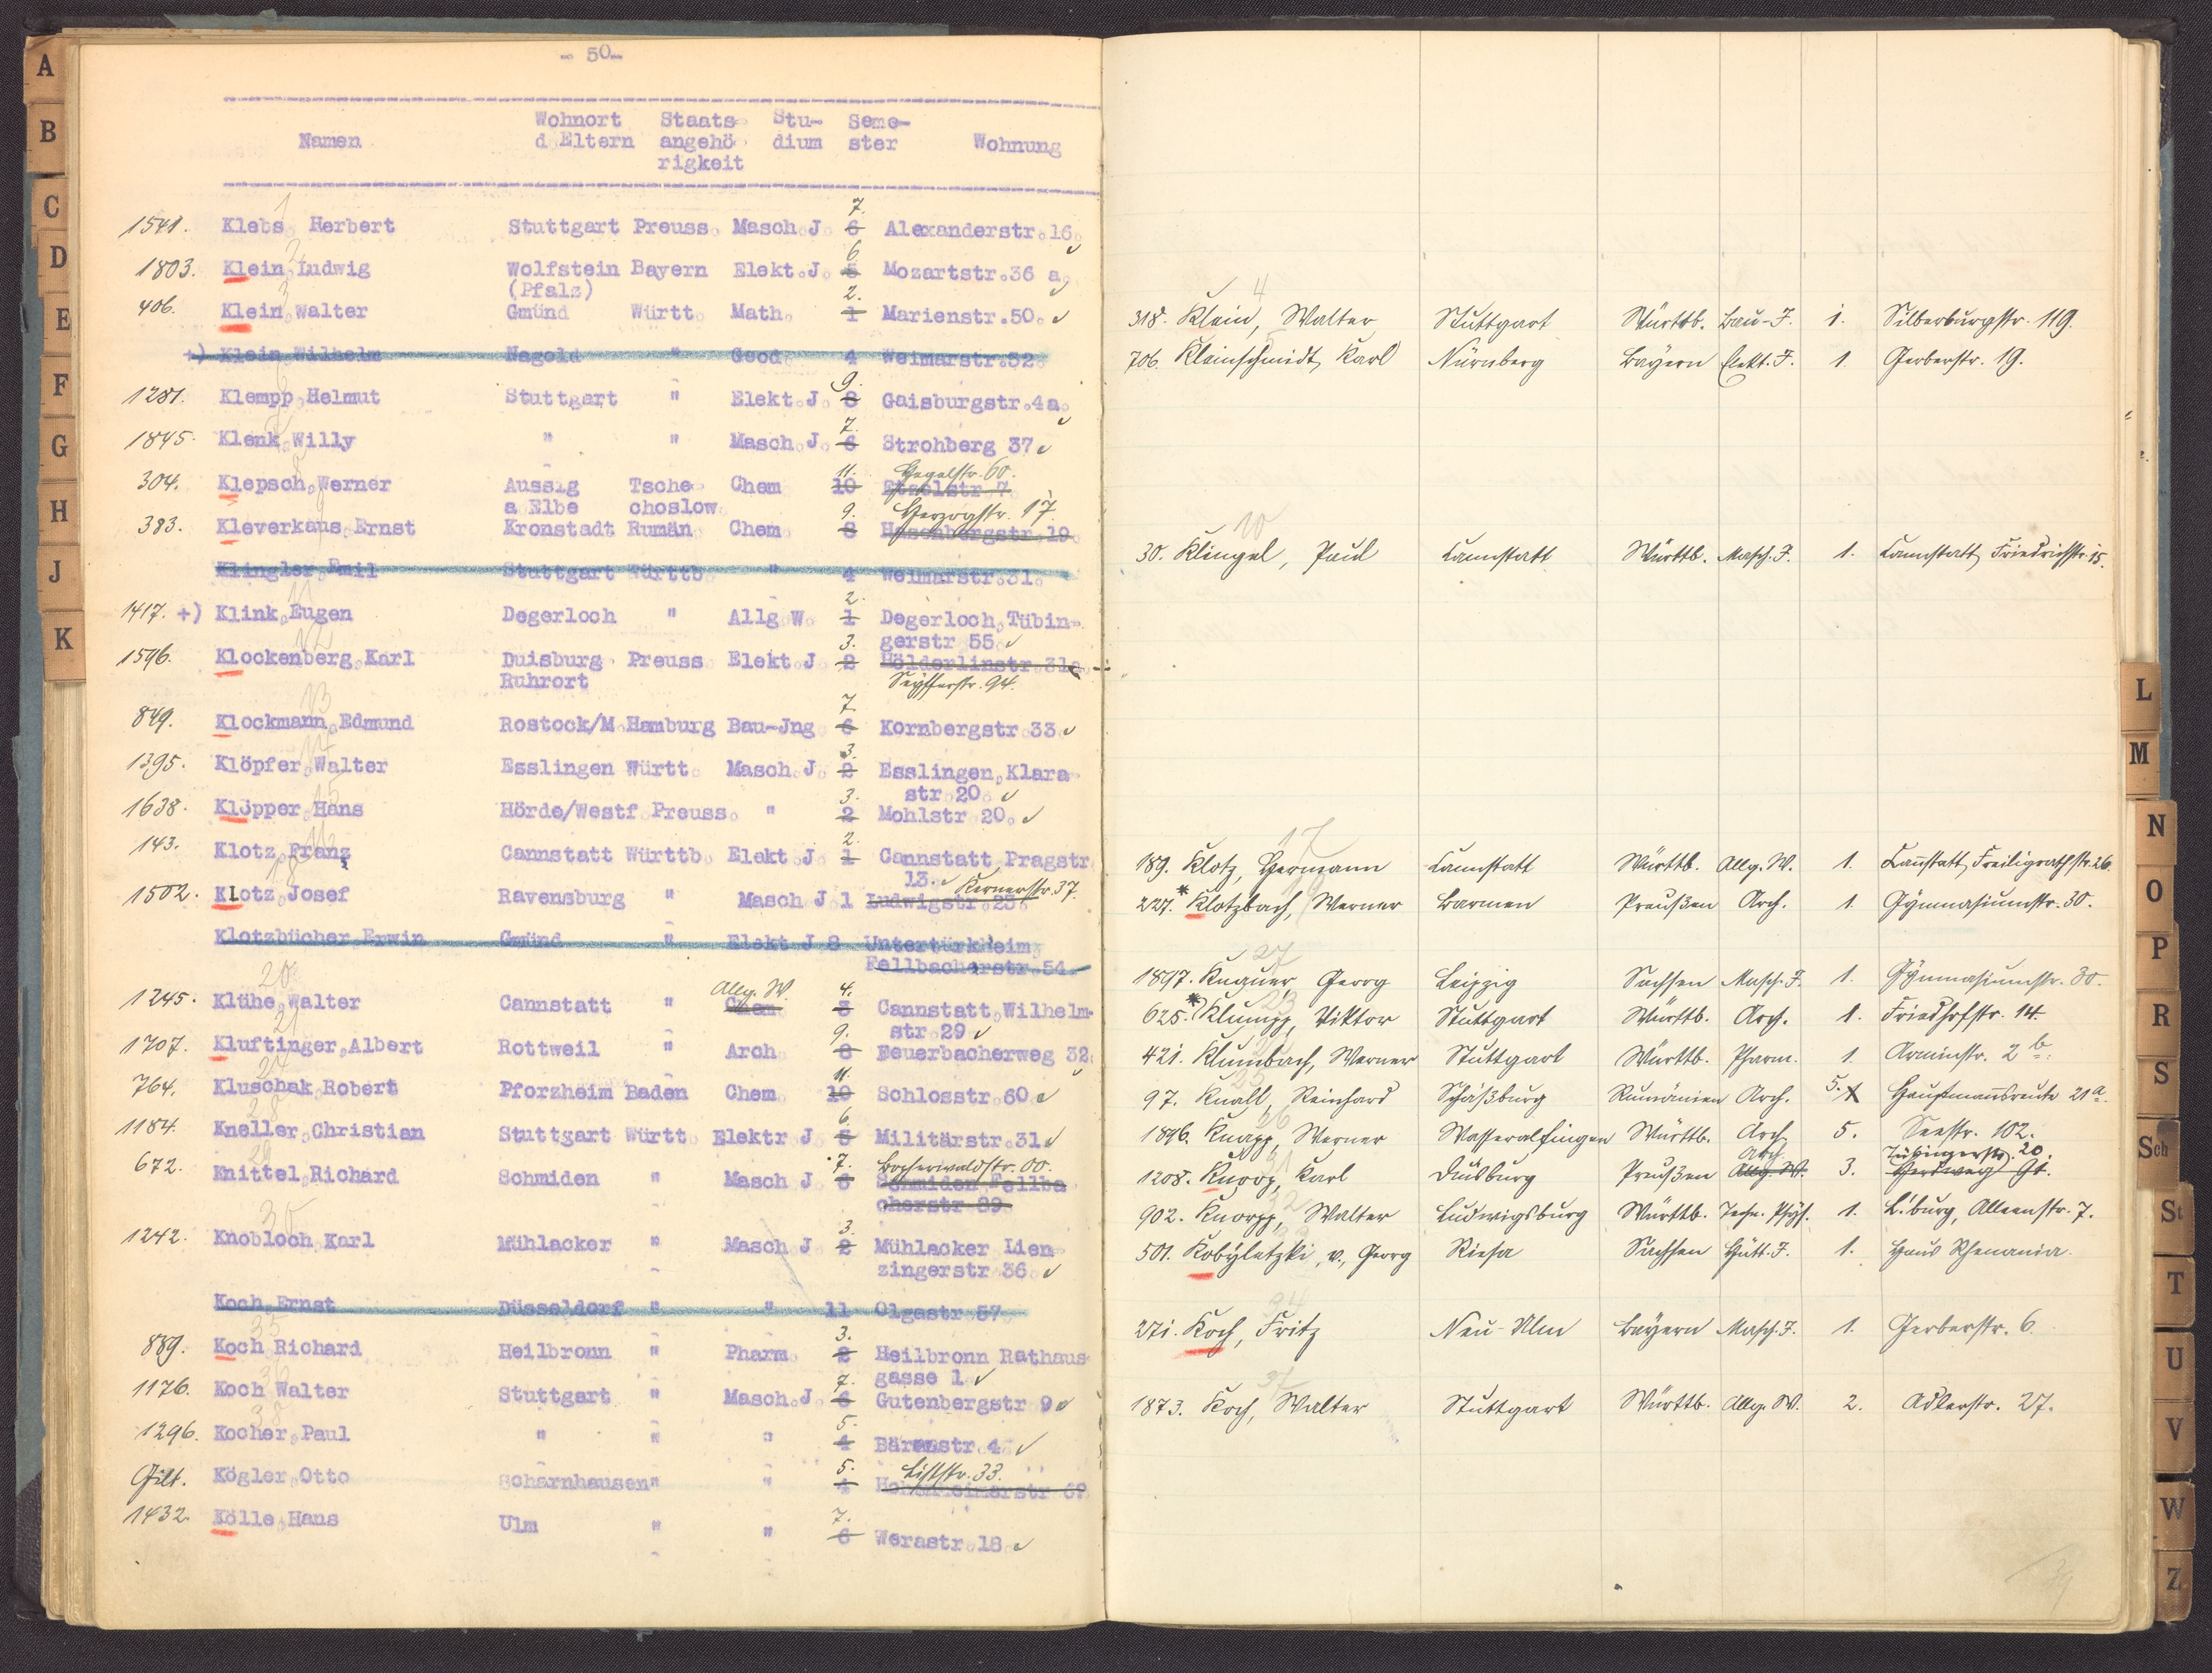 - 50 -
Namen Wohnort d.Eltern Staats- angehö- rigkeit Stu- dium Seme- ster Wohnung
1541. Klebs, Herbert Stuttgart Preuss. Masch.J. 6 7. Alexanderstr.16.
1803. Klein, Ludwig Wolfstein Bayern Elekt.J. 5 6 Mozartstr.36 a.
(Pfalz)
406. Klein, Walter Gmünd Württ. Math. 1 2. Marienstr.50.
+) Klein, Wilhelm Nagold " Geod. 4 Weimarstr.32.
1281. Klempp, Helmut Stuttgart " Elekt.J. 8 9. Gaisburgstr.4a.
1845. Klenk, Willy " " Masch.J. 6 7. Strohberg 37
304. Klepsch, Werner Aussig Tsche- Chem 10 11. Etzelstr 7 Hegelstr. 60.
a Elbe choslow.
383. Kleverkaus, Ernst Kronstadt Rumän. Chem. 8 9. Hasenbergstr.19. Herzogstr. 17.
Klingler, Emil Stuttgart Württb. " 4 Weimarstr.31.
1417. +) Klink, Eugen Degerloch " Allg W. 1 2. Degerloch, Tübin-
gerstr 55.
1596. Klockenberg, Karl Duisburg Preuss Elekt.J. 2 3. Hölderlinstr.31a.
Ruhrort Seyfferstr. 94.
849. Klockmann, Edmund Rostock/M.Hamburg Bau-Jng 6 7. Kornbergstr.33.
1395. Klöpfer, Walter Esslingen Württ. Masch.J. 2 3. Esslingen, Klara-
str.20.
1638. Klöpper, Hans Hörde/Westf.Preuss. " 2 3. Mohlstr 20.
143. Klotz, Franz Cannstatt Württb. Elekt.J. 1 2. Cannstatt, Pragstr
13.
1502. Klotz, Josef Ravensburg " Masch J 1 Ludwigstr.23. Kernerstr. 37.
Klotzbücher, Erwin Gmünd " Elekt J 8 Untertürkheim,
Fellbacherstr.54.
1245. Klühe, Walter Cannstatt " Chem. Allg. W. 3 4. Cannstatt, Wilhelm-
str.29
1707. Kluftinger, Albert Rottweil " Arch. 8 9. Feuerbacherweg 32.
764. Kluschak, Robert Pforzheim Baden Chem. 10 11. Schlosstr.60.
1184. Kneller, Christian Stuttgart Württ. Elektr J. 5 6. Militärstr.31.
672. Knittel, Richard Schmiden " Masch J. 6 7. Schmiden, Fellba Bocherwaldstr. 00.
cherstr 89.
1242. Knobloch, Karl Mühlacker " Masch.J. 2 3. Mühlacker Lien-
zingerstr.36.
Koch, Ernst Düsseldorf " " 11 Olgastr 57.
889. Koch Richard Heilbronn " Pharm. 2 3. Heilbronn Rathaus-
gasse 1.
1176. Koch Walter Stuttgart " Masch.J. 6 7. Gutenbergstr 9.
1296. Kocher, Paul " " " 4 5. Bärenstr.4.
Gilt. Kögler, Otto Scharnhausen " " 4 5. Hohenheimerstr 69 Liststr. 33.
1432. Kölle, Hans Ulm " " 6 7. Werastr.18.
318. Klein, Walter Stuttgart Württb. Bau-J. 1. Silberburgstr. 119.
706. Kleinschmidt, Karl Nürnberg Bayern Elekt. J. 1. Gerberstr. 19.
30. Klingel, Paul Cannstatt Württb. Masch. J. 1. Cannstatt, Friedrichstr. 15.
189. Klotz, Hermann Cannstatt Württb. Allg. W. 1. Cannstatt, Freiligrathstr. 26.
227. * Klotzbach, Werner Barmen Preußen Arch. 1. Gymnasiumstr. 30.
1897. Knauer, Georg Leipzig Sachsen Masch. J. 1. Gymnasiumstr. 30.
625. * Klumpp, Viktor Stuttgart Württb. Arch. 1. Friedhofstr. 14.
421. Klumbach, Werner Stuttgart Württb. Pharm. 1. Arminstr. 2 b.
97. Knall, Reinhard Schäßburg Rumänien Arch. 5. Hauptmannsreute 21 a.
1896. Knapp, Werner Wasseralfingen Württb. Arch 5. Seestr. 102.
1208. Knoop, Karl Duisburg Preußen Allg. W. Arch. 3. Herdweg 91. Tübingerstr. 20.
902. Knorpp, Walter Ludwigsburg Württb. Techn. Phys. 1. L'burg, Alleenstr. 7.
501. Kobyletzki, v., Georg Riesa Sachsen Hütt. J. 1. Haus Rhenania.
271. Koch, Fritz Neu-Ulm Bayern Masch. J. 1. Gerberstr. 6.
1873. Koch, Walter Stuttgart Württb. Allg. W. 2. Adlerstr. 27.
A
B
C
D
E
F
G
H
J
K
L
M
N
O
P
R
S
Sch
St
T
U
V
W
Z